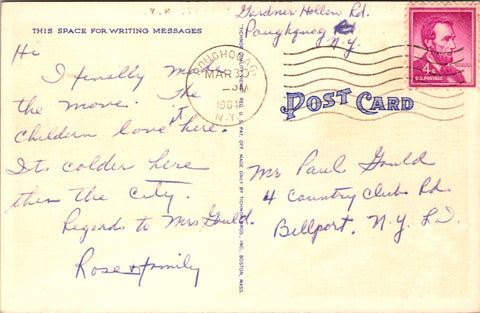 THIS SPACE FOR WRITING MESSAGES
Hi
I finally made
the move. The
childern love it here.
Its colder here
then the city.
Regards to Mrs Gould.
Rose & family
TICHNOR QUALITY VIEWS, REG. U. S. PAT. OFF. MADE ONLY BY TICHNOR BROS., INC., BOSTON, MASS.
Gardner Hollow Rd.
Poughquag
N.Y.
POUGHQUAG
MAR 30
PM
1961
N.Y.
4¢
U.S. POSTAGE
POST CARD
Mr Paul Gould
4 Country Club Rd.
Bellport, N.Y. L.I.